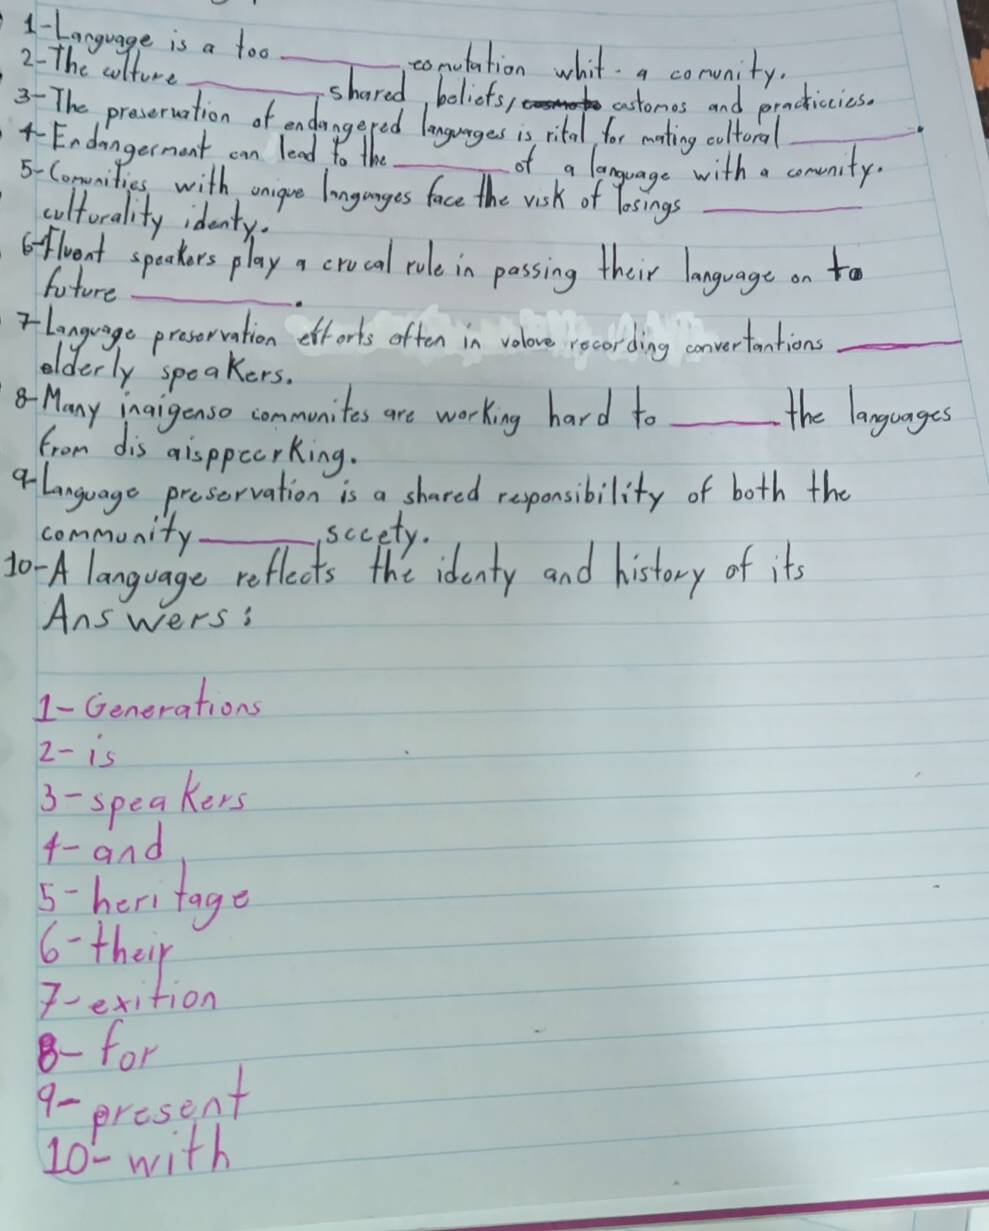 1-Language is a too ______ comutation whit. a comunity.
2-The culture ______ shared, beliefs, castomos and practiccies.
3-The preservation of endangered languages is rital, for mating cultoral ______.
4-Endangerment can lead to the ______ of a language with a comunity.
5-Comunities with unique languages face the risk of losings ______
culturality identy.
6-Fluent speakers play a crucal rule in passing their language on to
future ______.
7-Language preservation efforts often in volove recording convertantions ______
elderly speakers.
8-Many inaigenso communites are working hard to ______ the languages
from dis aisppccrking.
9-Language preservation is a shared responsibility of both the
community ______, sccety.
10-A language reflects the identy and history of its
Answers:
1-Generations
2-is
3-speakers
4-and
5-heritage
6-their
7-exition
8-for
9-present
10-with